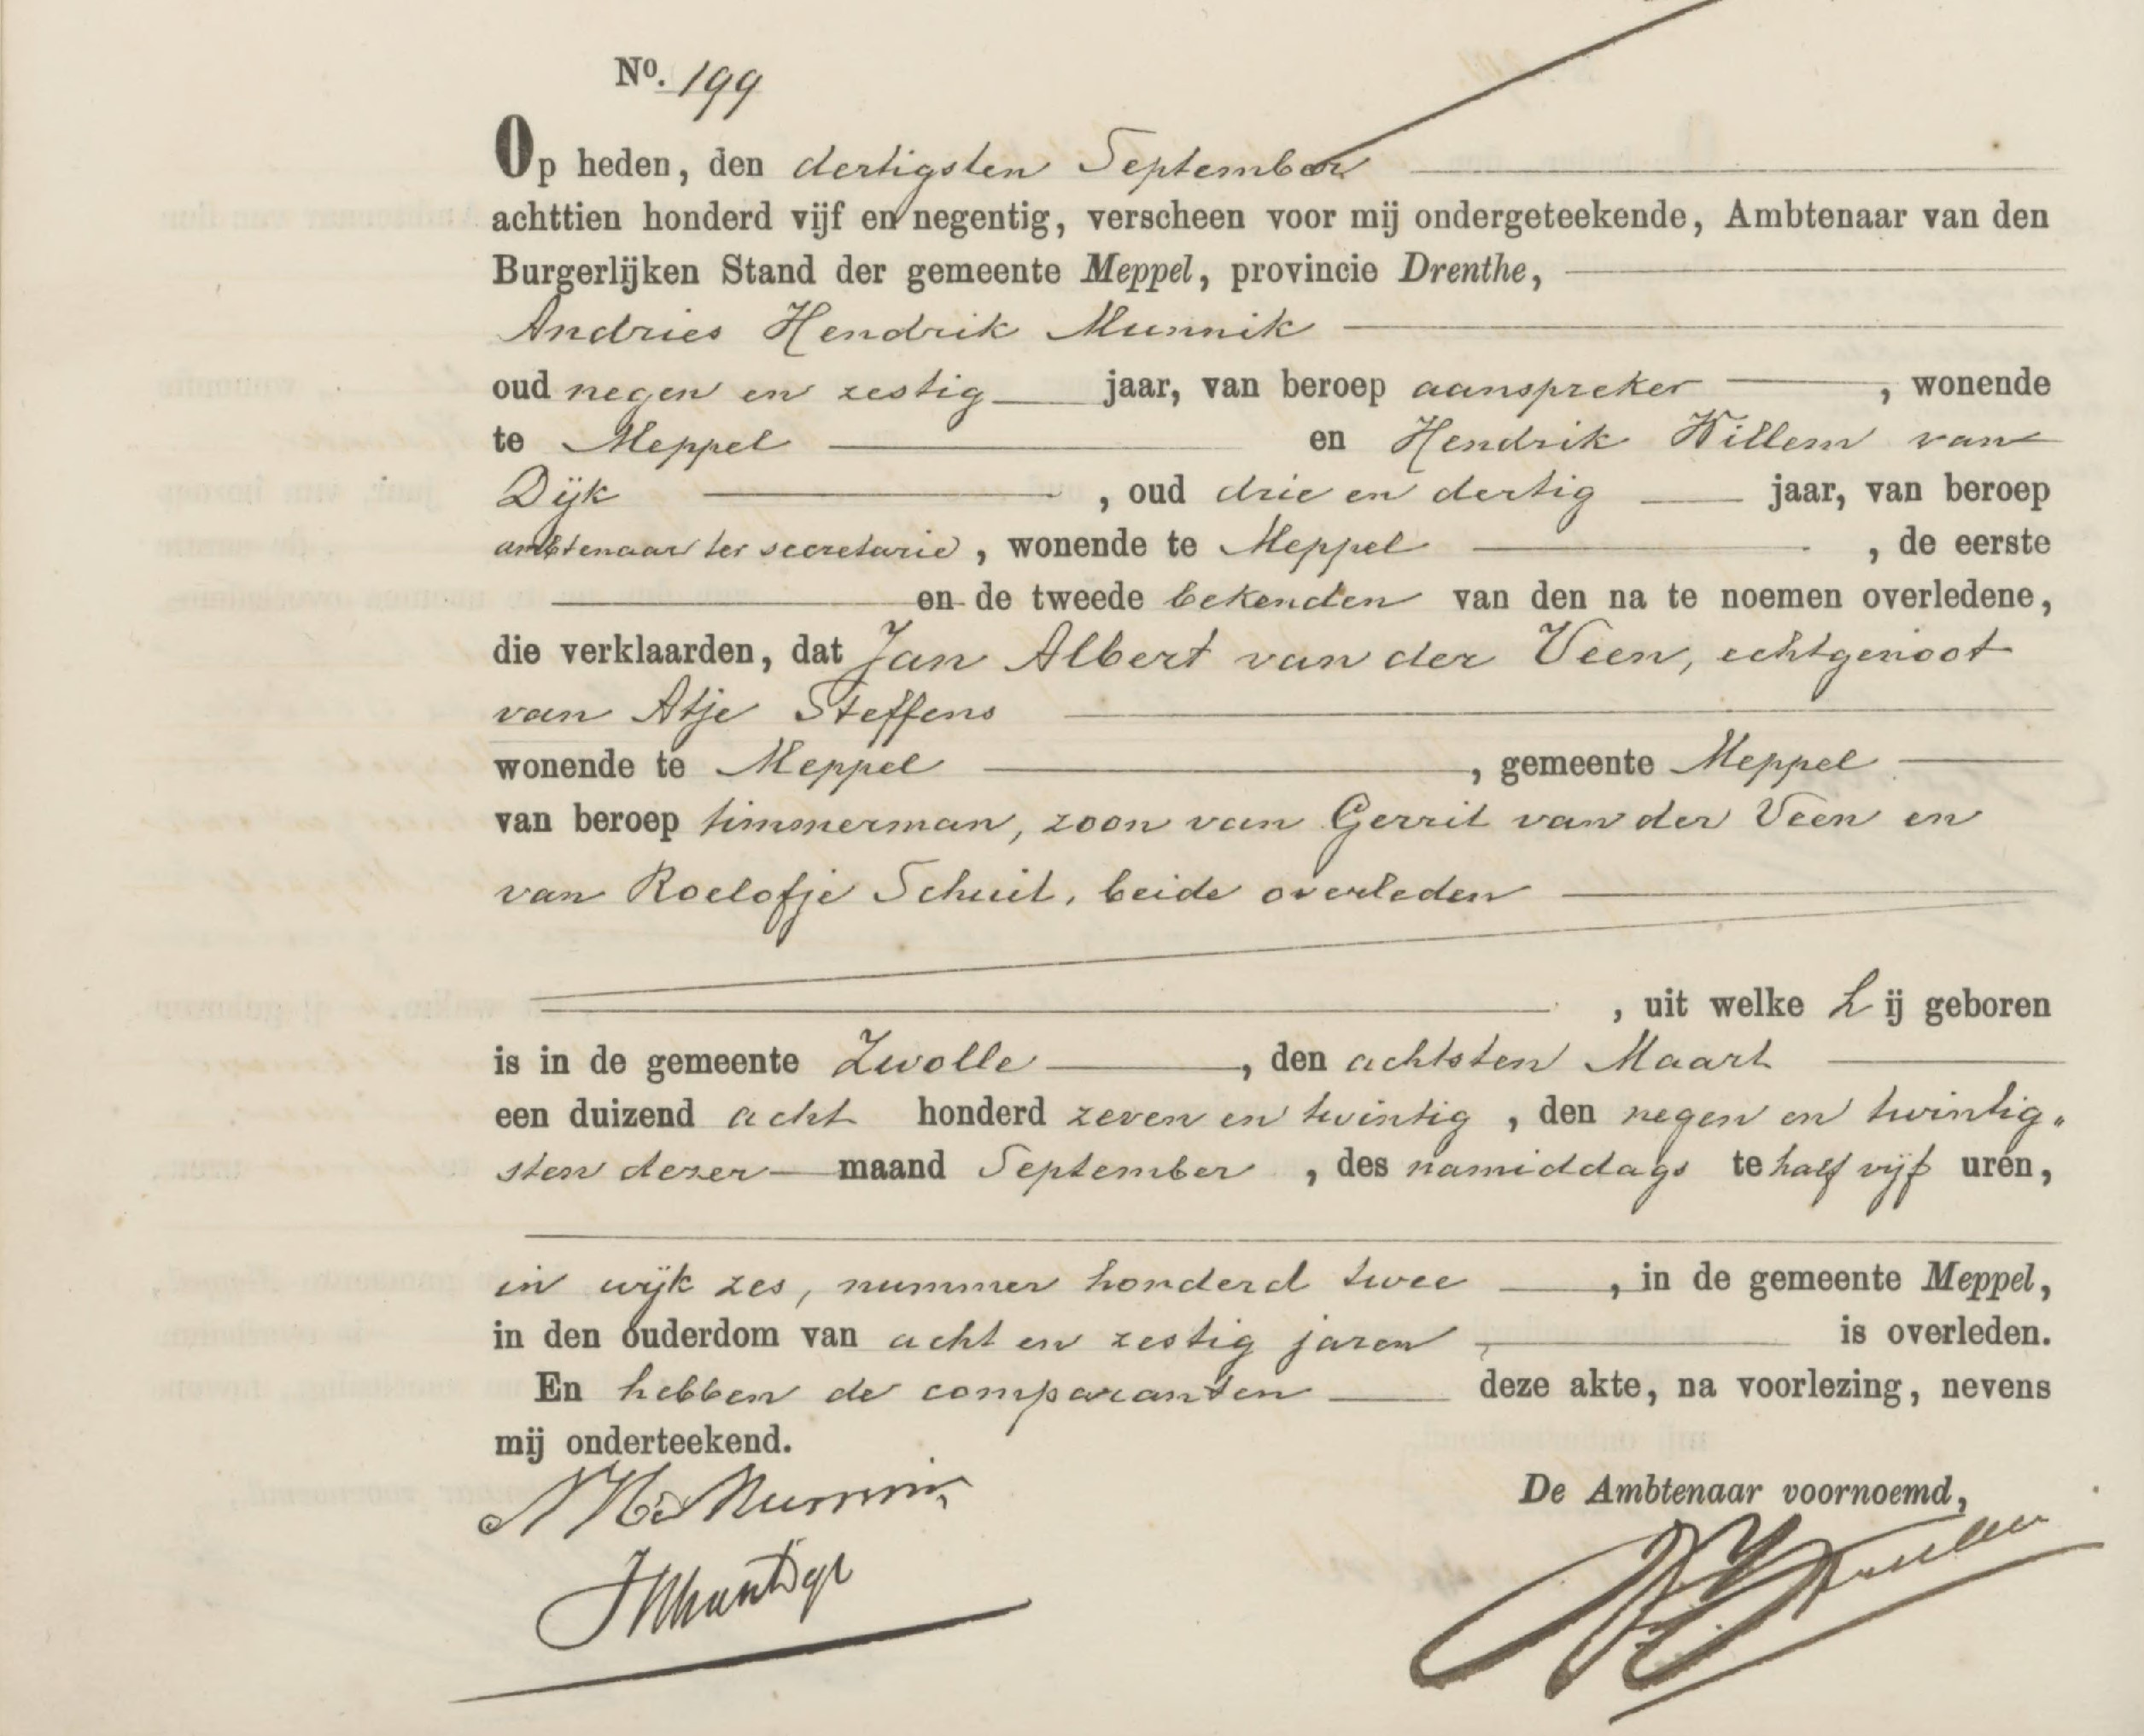 No. 199
Op heden, den dertigsten September
achttien honderd vijf en negentig, verscheen voor mij ondergeteekende, Ambtenaar van den
Burgerlijken Stand der gemeente Meppel, provincie Drenthe,
Andries Hendrik Munnik
oud negen en zestig jaar, van beroep aanspreker, wonende
te Meppel en Hendrik Willem van
Dijk, oud drie en dertig jaar, van beroep
ambtenaar ter secretarie, wonende te Meppel, de eerste
en de tweede bekenden van den na te noemen overledene,
die verklaarden, dat Jan Albert van der Veen, echtgenoot
van Atje Steffens
wonende te Meppel, gemeente Meppel
van beroep timmerman, zoon van Gerrit van der Veen en
van Roelofje Schuil, beide overleden
, uit welke hij geboren
is in de gemeente Zwolle, den achtsten Maart
een duizend acht honderd zeven en twintig, den negen en twintig"
sten dezer maand September, des namiddags te half vijf uren,
in wijk zes, nummer honderd twee, in de gemeente Meppel,
in den ouderdom van acht en zestig jaren is overleden.
En hebben de comparanten deze akte, na voorlezing, nevens
mij onderteekend.
De Ambtenaar voornoemd,
AH Munnik
HWvanDijk